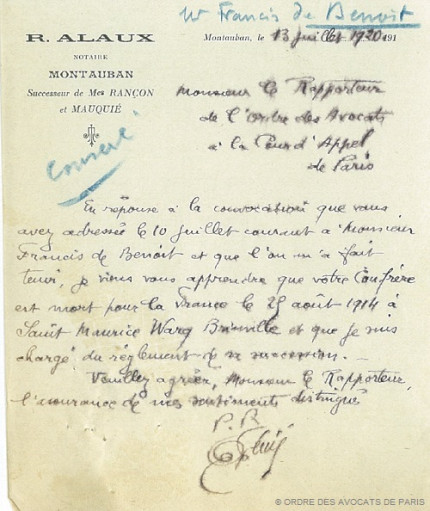 Mr Francis de Benoit
R. ALAUX
NOTAIRE
MONTAUBAN
Successeur de Mes RANÇON
et MAUQUIÉ
Montauban, le 13 juillet 1920 191
Monsieur le Rapporteur
de l'Ordre des Avocats
à la Cour d'Appel
de Paris
En réponse à la convocation que vous
avez adressée le 10 juillet courant à Monsieur
Francis de Benoit et que l'on m'a fait
tenir, je viens vous apprendre que votre Confrère
est mort pour la France le 25 août 1914 à
Saint Maurice et que je suis
chargé du règlement de sa succession. —
Veuillez agréer, Monsieur le Rapporteur,
l'assurance de mes sentiments distingués
© ORDRE DES AVOCATS DE PARIS